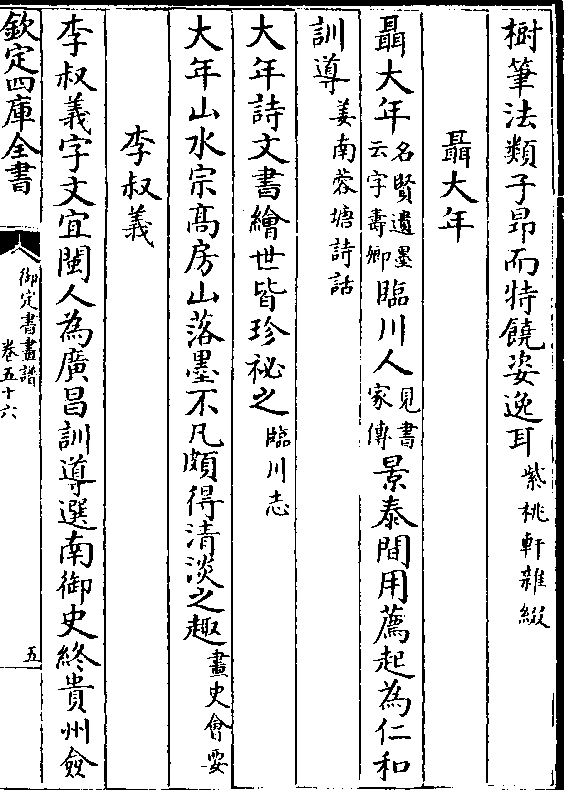 樹筆法類子昂而特饒姿逸耳紫桃軒雜綴
聶大年
聶大年名賢遺墨云字壽卿臨川人見書家傳景泰間用薦起為仁和
訓導姜南蓉塘詩話
大年詩文書繪世皆珍祕之臨川志
大年山水宗髙房山落墨不凡頗得清淡之趣畫史會要
李叔義
李叔義字文宜閩人為廣昌訓導選南御史終貴州僉
欽定四庫全書
御定書畫譜
卷五十六
五